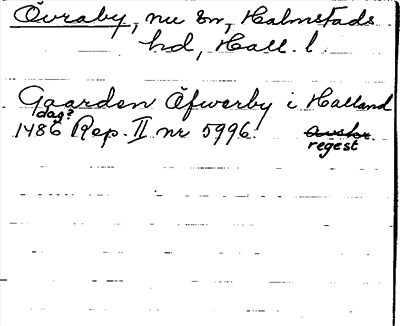 Övraby, nu sn, Halmstads
hd, Hall. l.
Gaarden Öfwerby i Halland
dag?
1486 Rep. II nr 5996. avskr.
regest